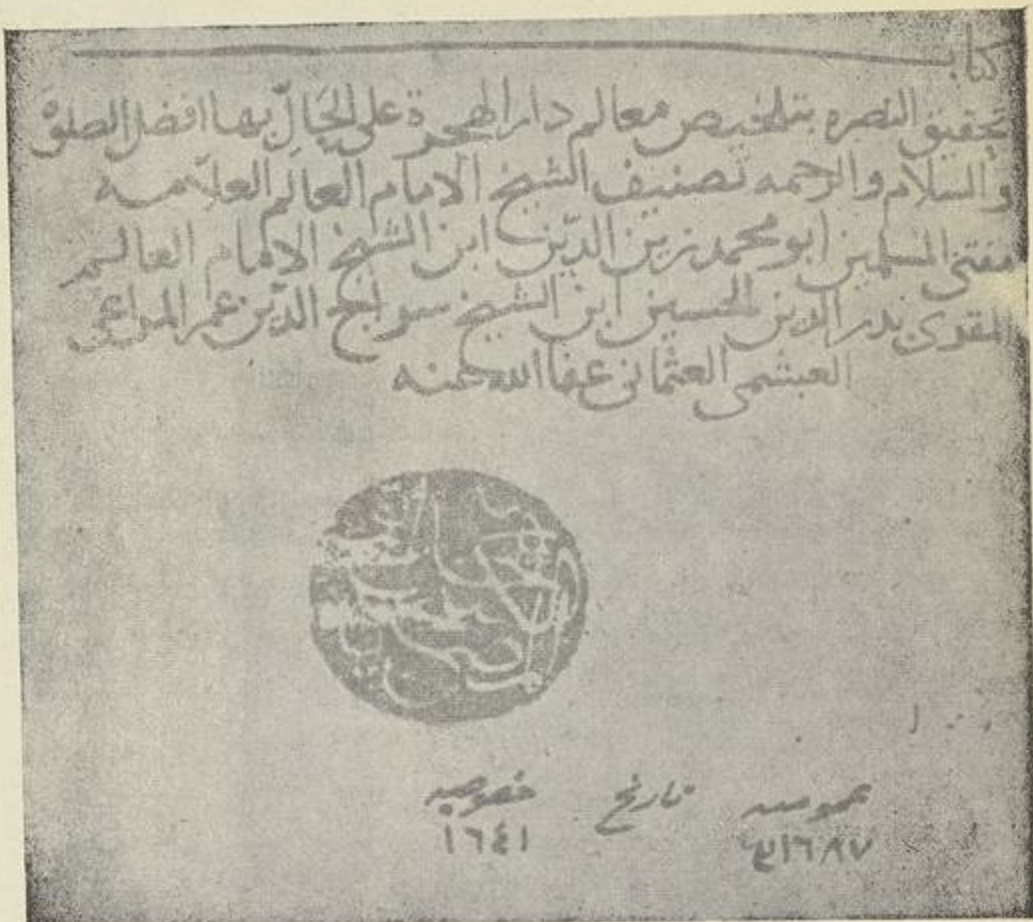 كتاب
تحقيق النصره بتلخيص معالم دار الهجرة على الحَالِّ بها افضل الصلوة
والسلام والرحمه تصنيف الشيخ الامام العالم العلامه
مفتى المسلمين ابو محمد زين الدّين ابن الشيخ الامام العالم
المقرى بدر الدين الحسين ابن الشيخ سراج الدّين عمر المراغى
العبشمى العثمانى عفا الله عنه
عموميه تاريخ خصوصيه
١٦٨٧ ١٦٤١